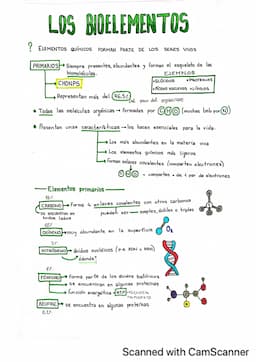 LOS BIOELEMENTOS
? ELEMENTOS QUÍMICOS FORMAN PARTE DE LOS SERES VIVOS
PRIMARIOS → Siempre presentes, abundantes y forman el esqueleto de las biomoléculas.
EJEMPLOS
• GLÚCIDOS • PROTEÍNAS
• ÁCIDOS NUCLEICOS • LÍPIDOS
CHONPS
Representan más del 96,5% del peso del organismo
• Todas las moléculas orgánicas → formadas por C H O (muchas tmb por N)
• Presentan unas características → las hacen esenciales para la vida:
Los más abundantes en la materia viva
Los elementos químicos más ligeros
forman enlaces covalentes (comparten electrones)
comparten + de 1 par de electrones
Elementos primarios
CARBONO → forma 4 enlaces covalentes con otros carbonos
se encuentran en todos lados
pueden ser → simples, dobles o triples
OXÍGENO → muy abundante en la superficie
NITRÓGENO → ácidos nucleicos (p.e. ADN o ARN)
FÓSFORO → forma parte de los ácidos nucleicos
se encuentran en algunas proteínas
función energética → ATP
AZUFRE → se encuentra en algunas proteínas
Scanned with CamScanner